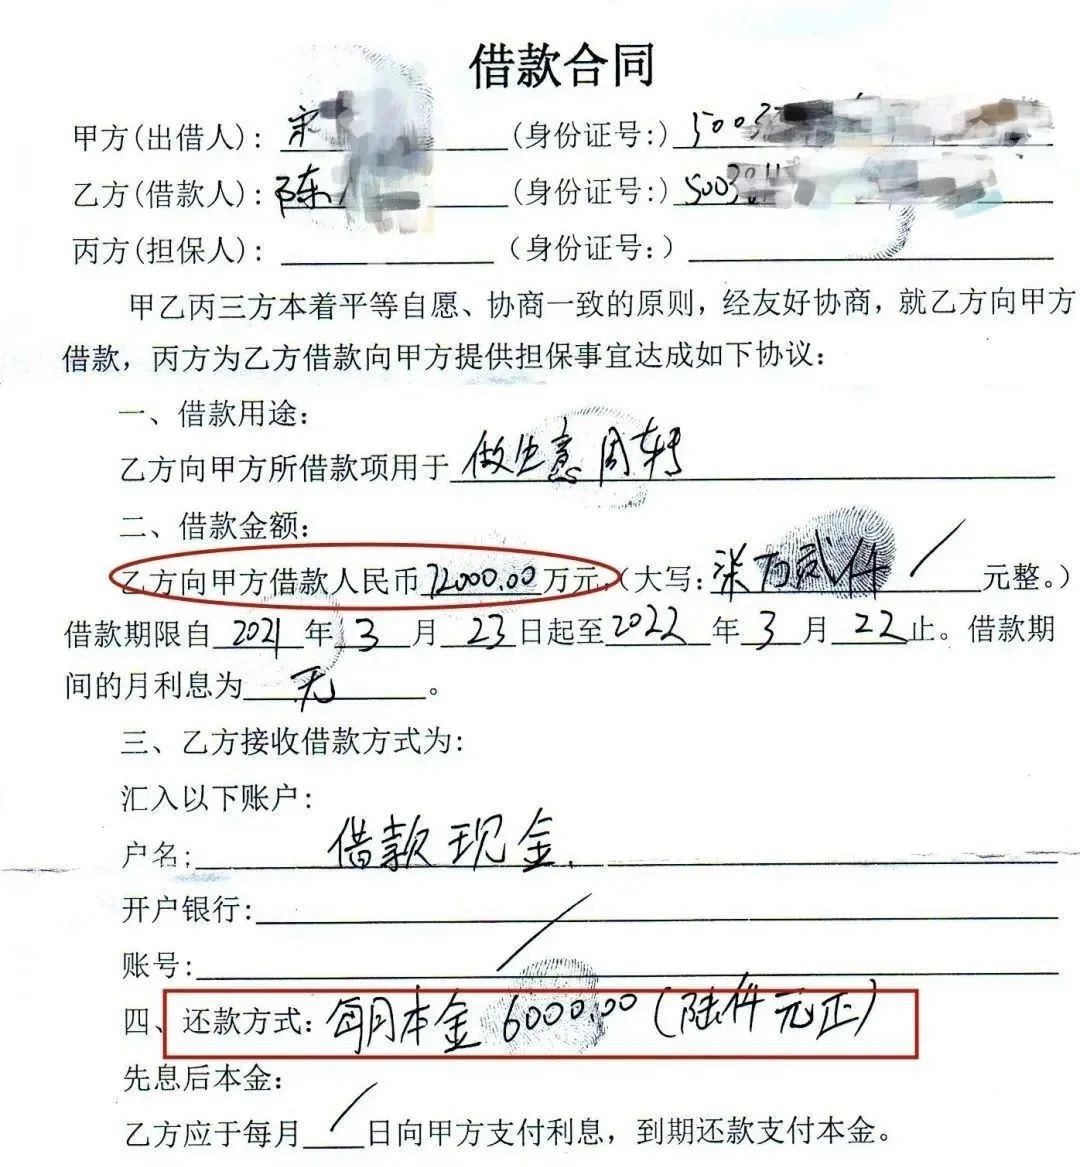 借款合同
甲方(出借人): 宋 (身份证号:) 5003
乙方(借款人): 陈 (身份证号:) 500381
丙方(担保人): (身份证号:)
甲乙丙三方本着平等自愿、协商一致的原则,经友好协商,就乙方向甲方
借款,丙方为乙方借款向甲方提供担保事宜达成如下协议:
一、借款用途:
乙方向甲方所借款项用于 做生意周转
二、借款金额:
乙方向甲方借款人民币 72000.00 万元,(大写: 柒万贰仟 / 元整。)
借款期限自 2021 年 3 月 23 日起至 2022 年 3 月 22 止。借款期
间的月利息为 无 。
三、乙方接收借款方式为:
汇入以下账户:
户名: 借款现金.
开户银行:
账号:
四、还款方式: 每月本金 6000.00 (陆仟元正)
先息后本金:
乙方应于每月 / 日向甲方支付利息,到期还款支付本金。